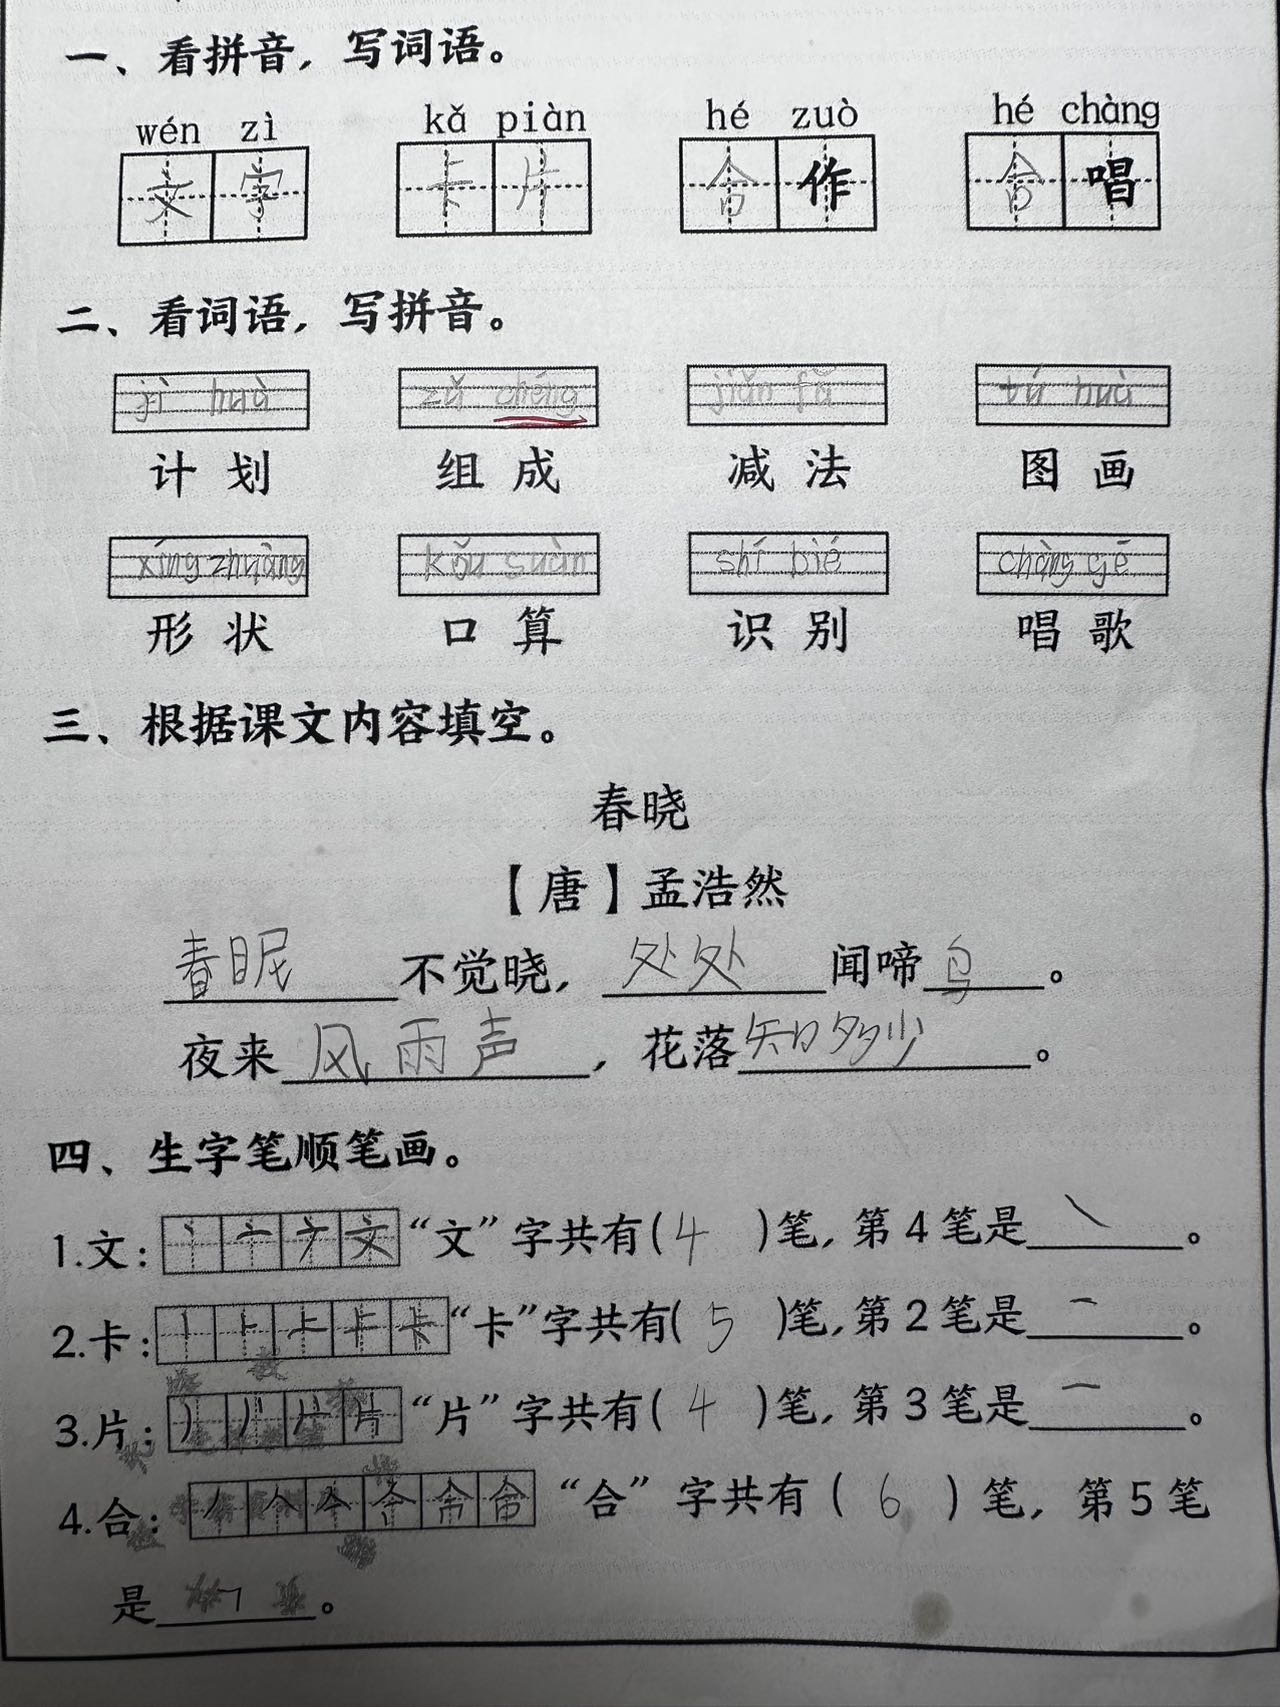 一、看拼音，写词语。
wén zì kǎ piàn hé zuò hé chàng
文字 卡片 合作 合唱
二、看词语，写拼音。
jì huà zǔ chéng jiǎn fǎ tú huà
计划 组成 减法 图画
xíng zhuàng kǒu suàn shí bié chàng gē
形状 口算 识别 唱歌
三、根据课文内容填空。
春晓
【唐】孟浩然
春眠不觉晓，处处闻啼鸟。
夜来风雨声，花落知多少。
四、生字笔顺笔画。
1.文：丶 亠 ナ 文 “文”字共有(4)笔，第4笔是㇏。
2.卡：丨 ⺊ 上 卡 “卡”字共有(5)笔，第2笔是一。
3.片：丿 片 “片”字共有(4)笔，第3笔是一。
4.合：丿 人 亼 合 “合”字共有(6)笔，第5笔
是㇕。